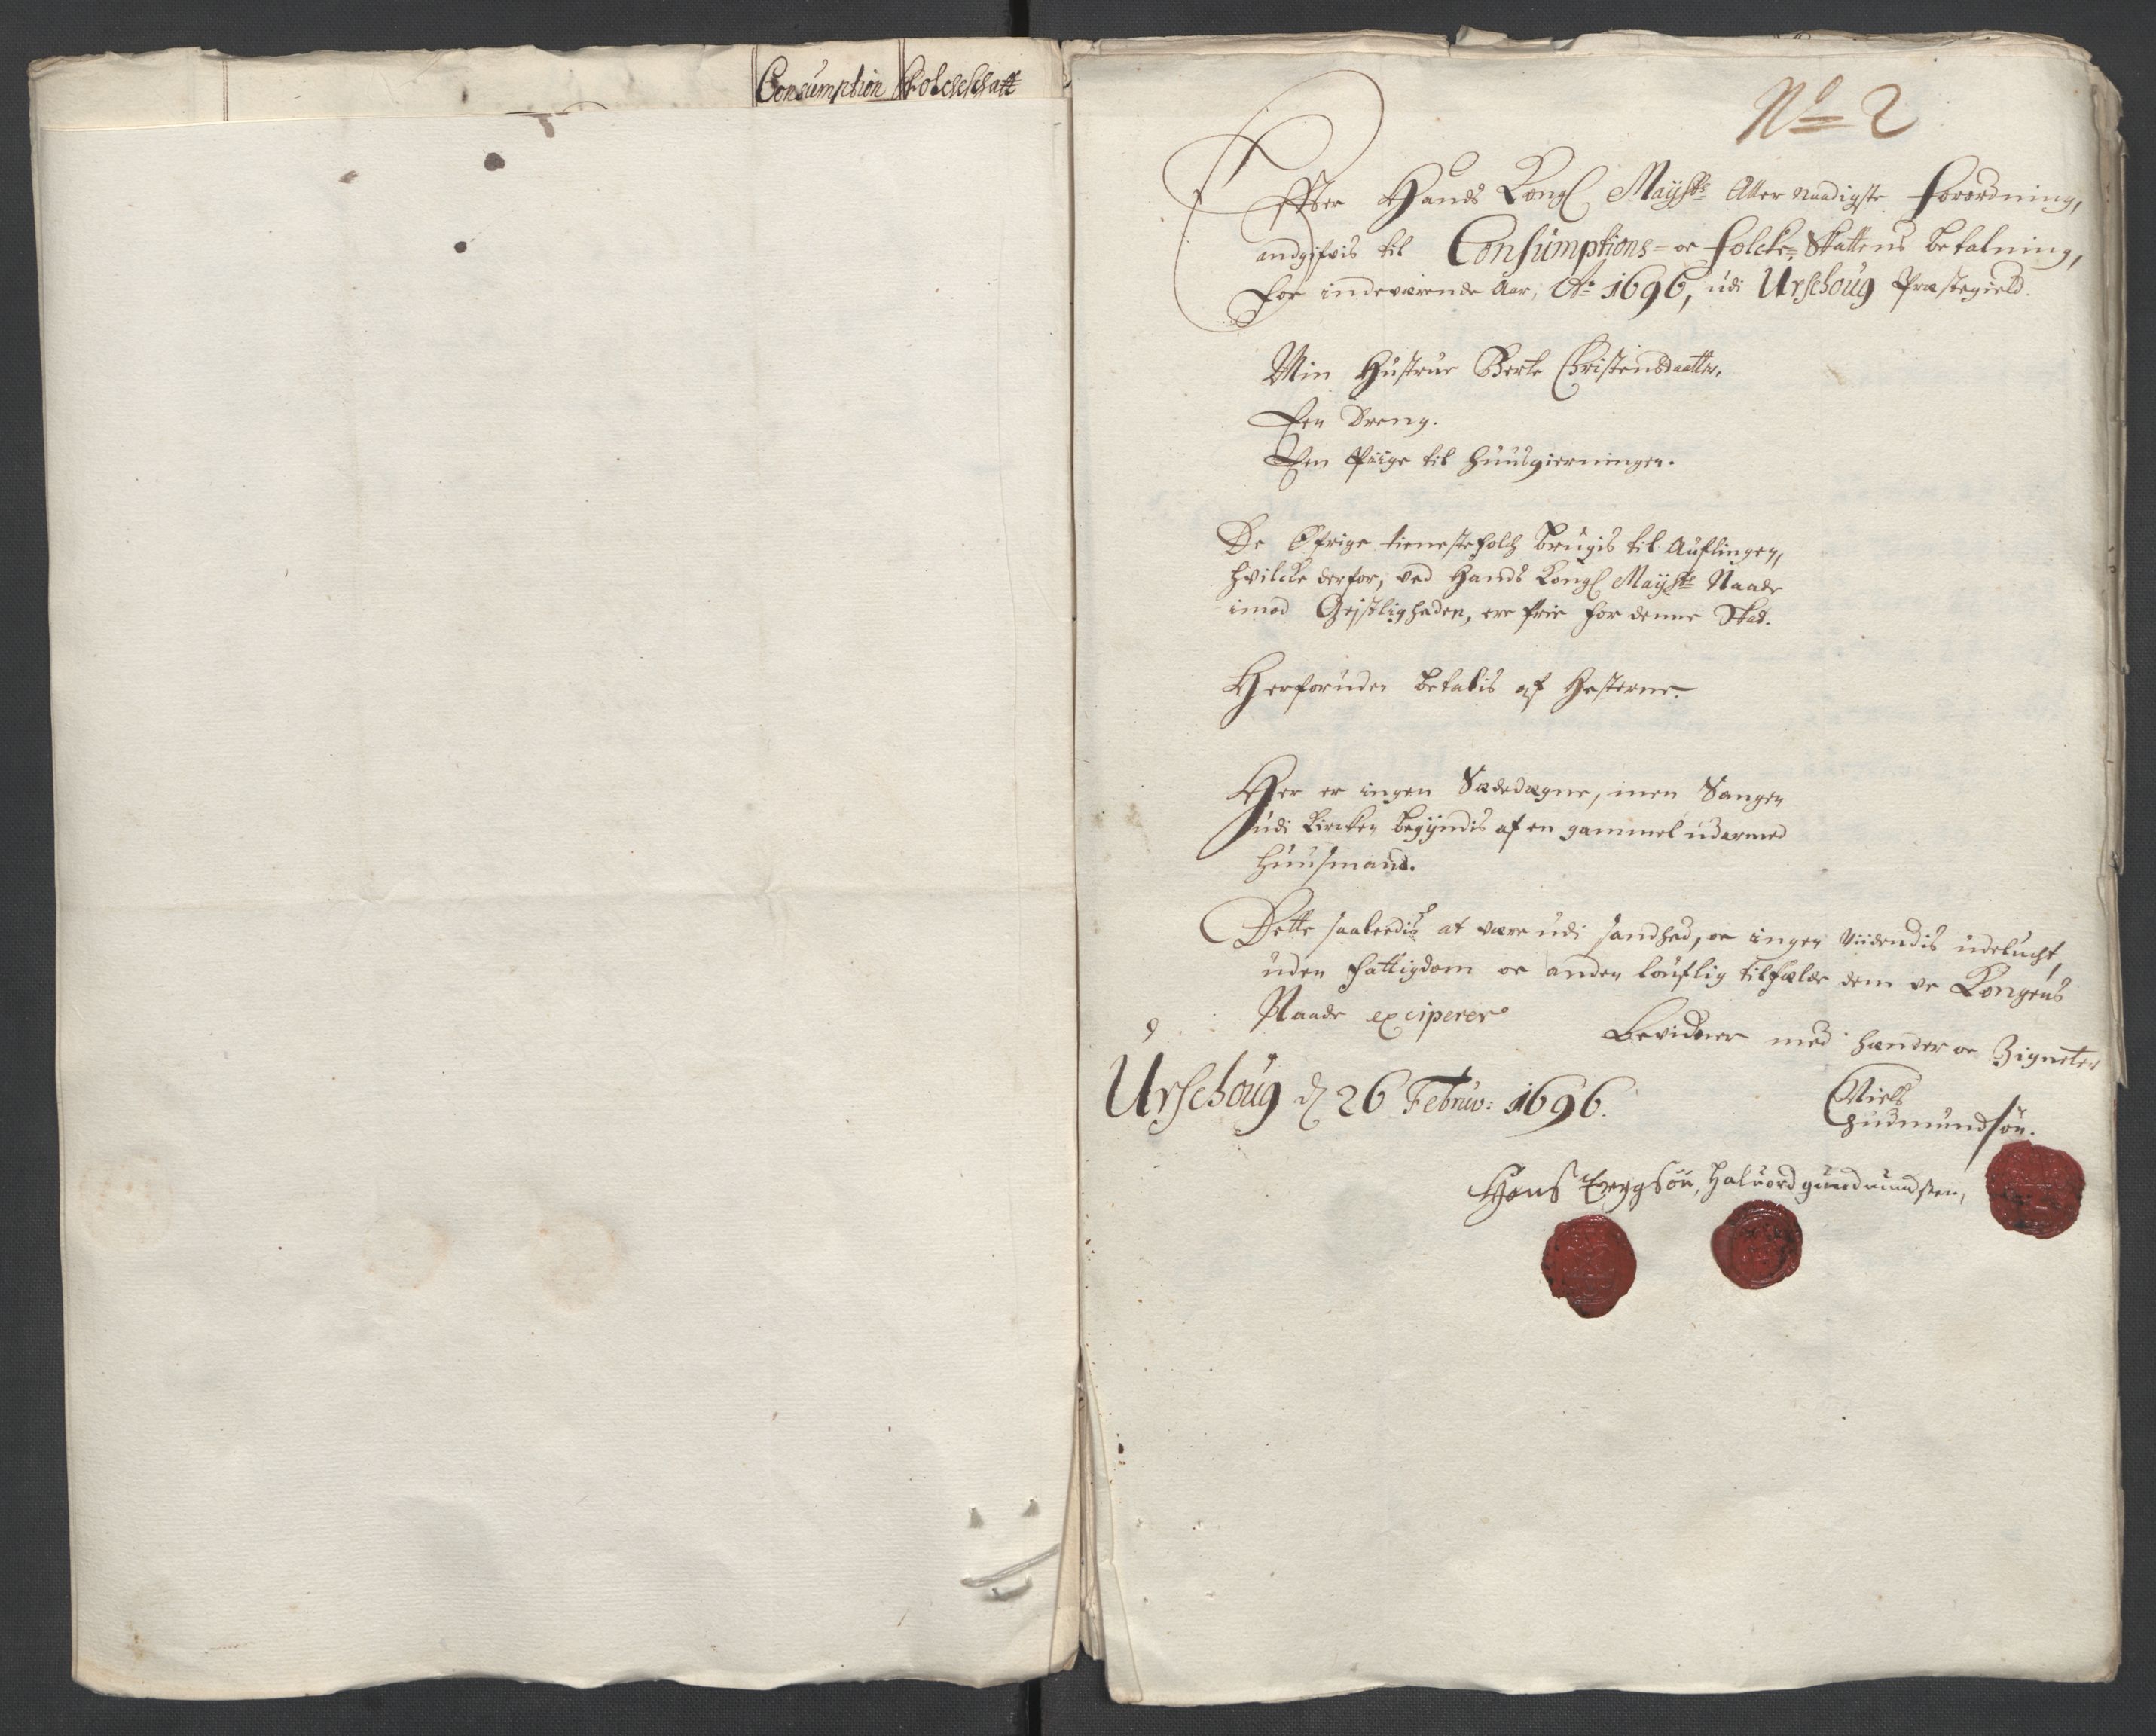 Consumption Folcheskatt
No 2
Effter Hands Kongl Mayst:s Aller naadigste forordning,
andgifvis til Consumptions- oc folcke-Skattens betalning,
for indeværende Aar, Ao 1696, udi Urschoug Præstegield.
Min Hustrue Berte Christensdaatter.
Een Dreng.
Een Piige til huusgierningen.
De Øfrige tienestefolch brugis til Auflingen,
hvilcke derfor, ved Hands Kongl Mayst:s Naade
imod Gejstligheden, ere frie for denne Skat.
Herforuden betalis af Hesterne.
Her er ingen Sædedegne, men Sangen
udi Kircken begyndis af en gammel udarmed
huusmand.
Dette saaledis at være udi sandhed, oc ingen viidendis udelucht,
uden fattigdom oc anden louflig tilfælde dem ve Kongens
Naade exciperer
Bevidner med hænder oc Zigneter
Urschoug d 26 Februv: 1696.
Niels
Gudmundsøn.
Hans Halvord gundmundsen,